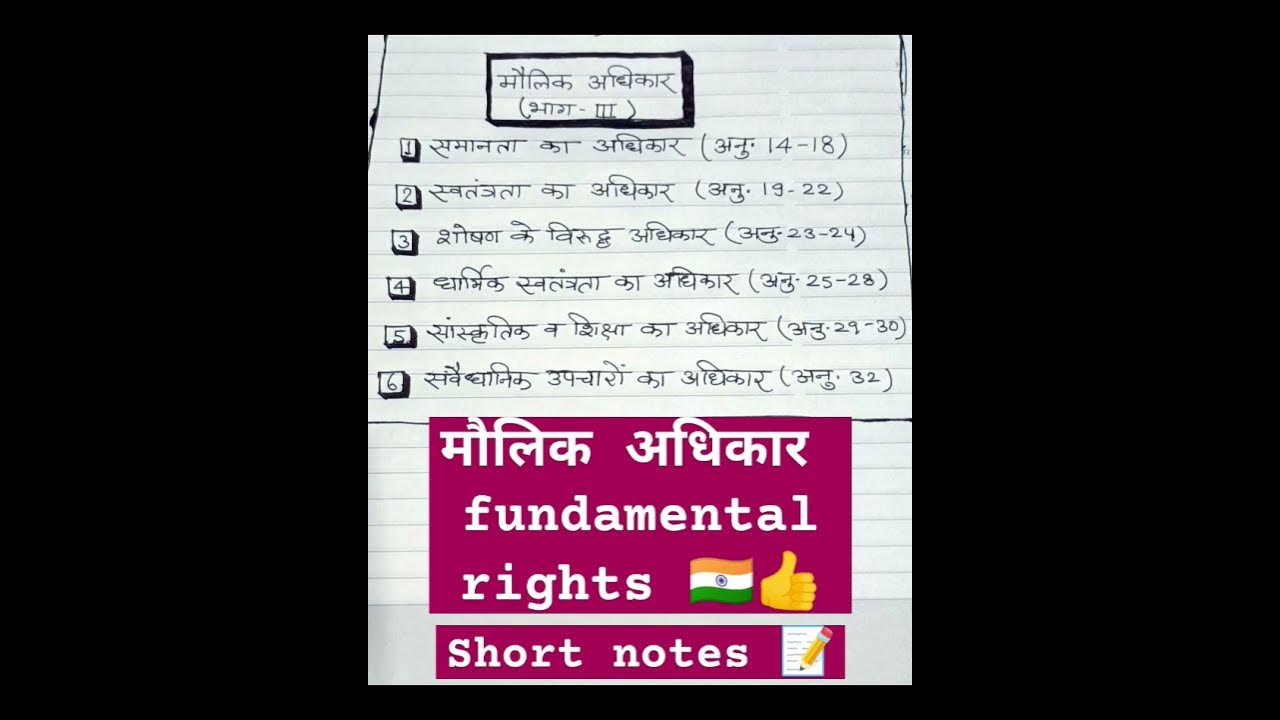 मौलिक अधिकार
(भाग - III)
1 समानता का अधिकार (अनु॰ 14-18)
2 स्वतंत्रता का अधिकार (अनु॰ 19-22)
3 शोषण के विरुद्ध अधिकार (अनु॰ 23-24)
4 धार्मिक स्वतंत्रता का अधिकार (अनु॰ 25-28)
5 सांस्कृतिक व शिक्षा का अधिकार (अनु॰ 29-30)
6 संवैधानिक उपचारों का अधिकार (अनु॰ 32)
मौलिक अधिकार
fundamental
rights 🇮🇳👍
Short notes 📝